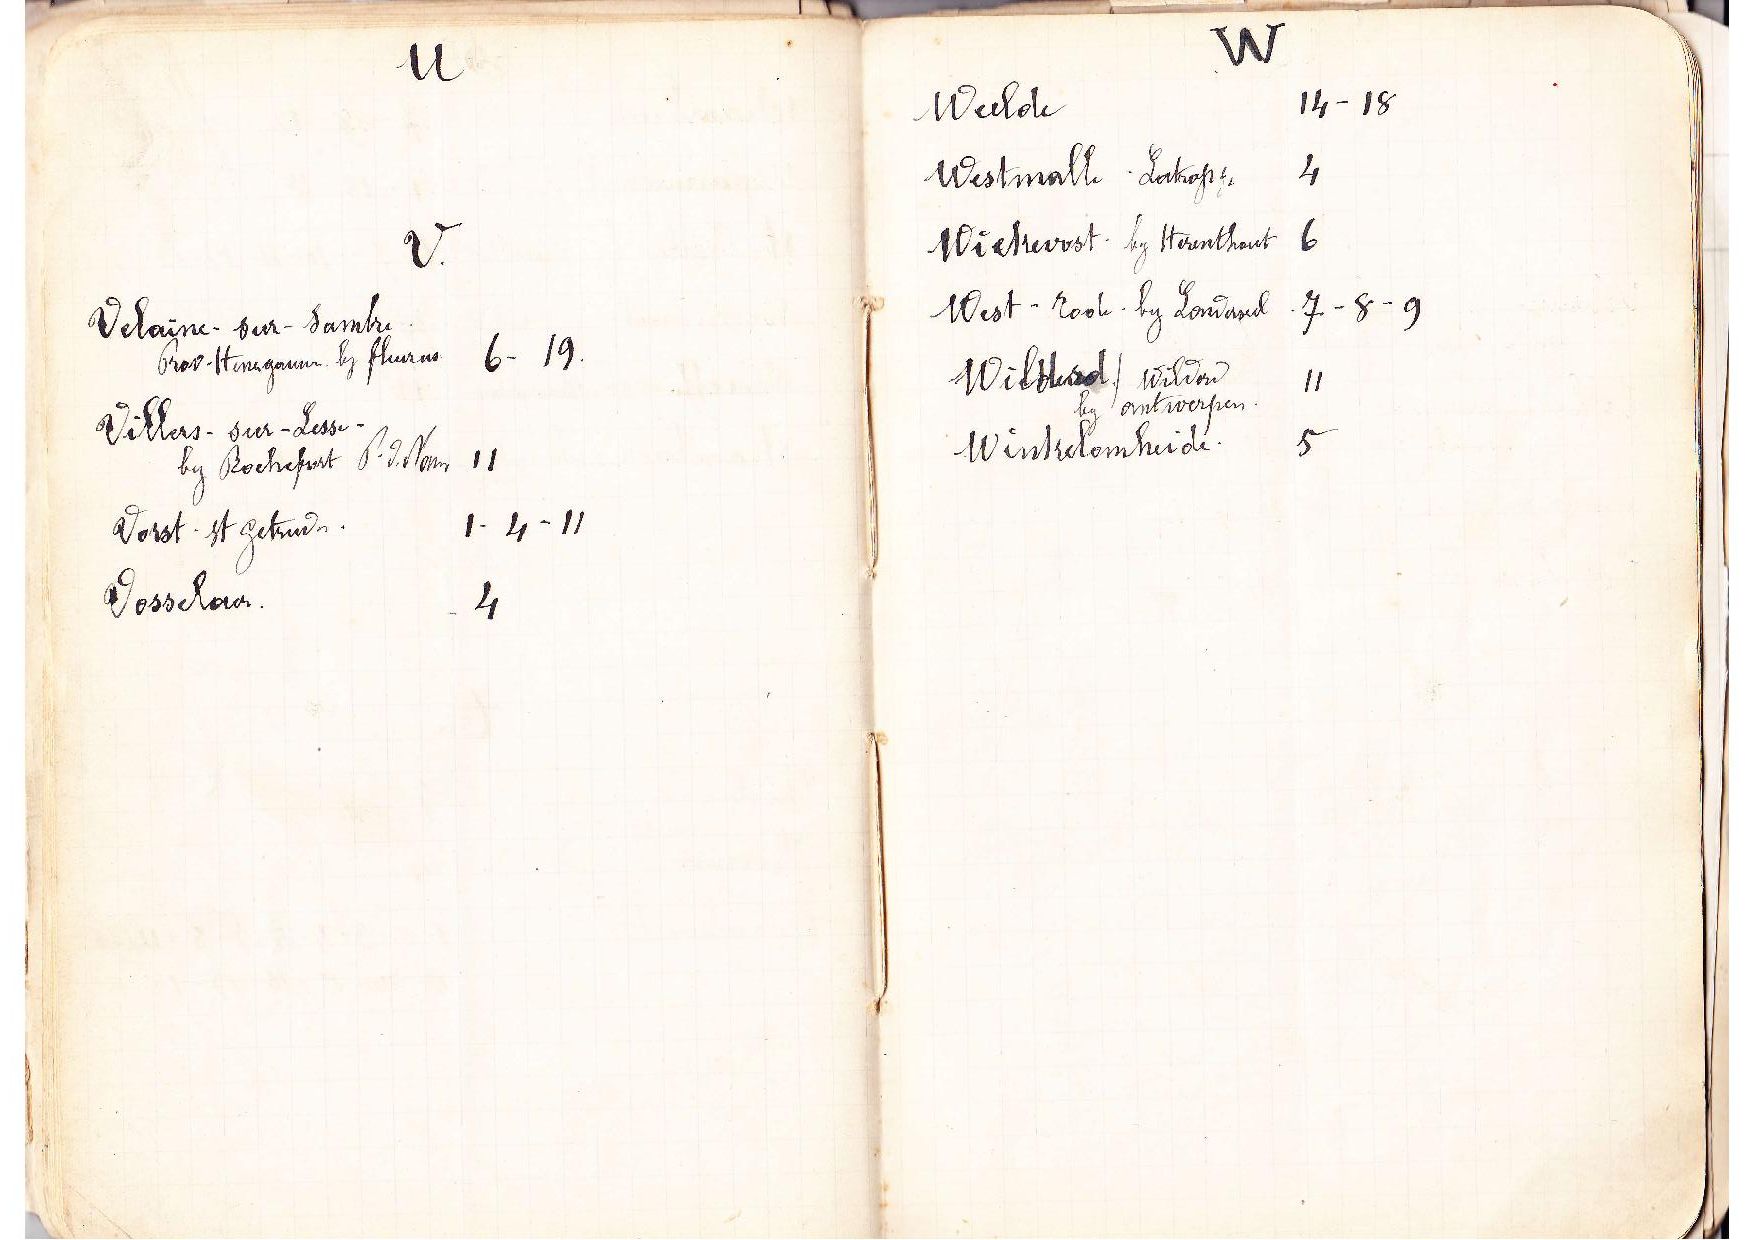 U
V.
Velaine - sur - Sambre.
Prov. Henegouw. by fleurus 6 - 19.
Villers - sur - Lesse -
by Rochefort P. d. Nam 11
Vorst - st 1 - 4 - 11
Vosselaar. 4
W
Weelde 14 - 18
Westmalle - 4
Wiekevost - by Herenthout 6
West - Rode - by 7 - 8 - 9
11
by antwerpen.
Winkelomheide. 5